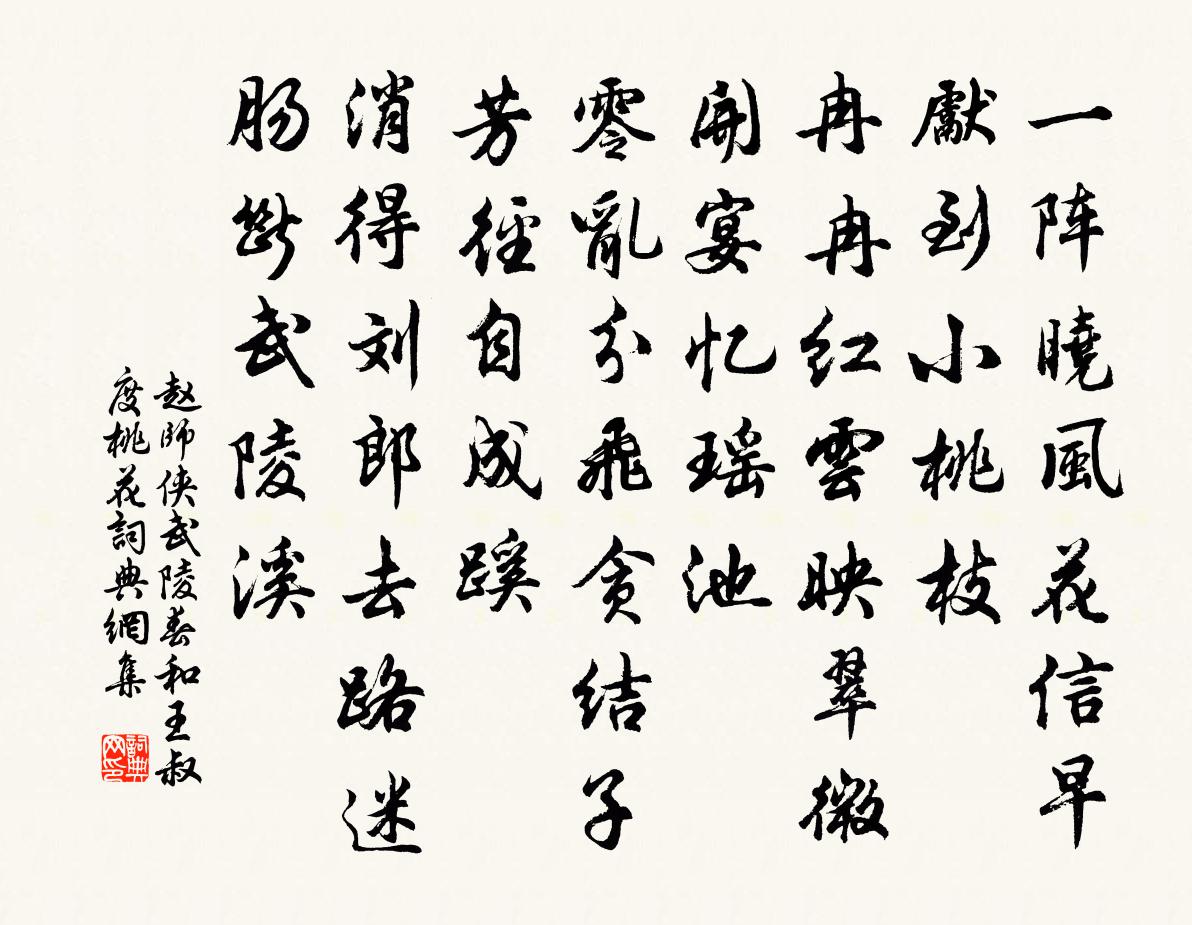 一阵曉風花信早
獻到小桃枝
冉冉红雲映翠微
開宴忆瑶池
零亂分飛贪结子
芳徑自成蹊
消得刘郎去路迷
肠斷武陵溪
赵師侠武陵春和王叔
度桃花詞典網集
詞典网印